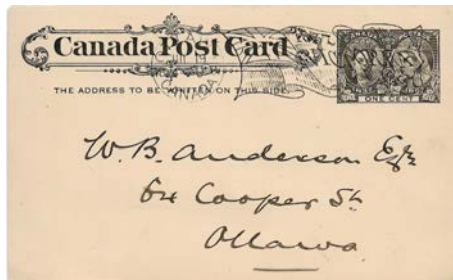 Canada Post Card
THE ADDRESS TO BE WRITTEN ON THIS SIDE.
CANADA
ONE CENT
W. B. Anderson Esqr
64 Cooper St
Ottawa